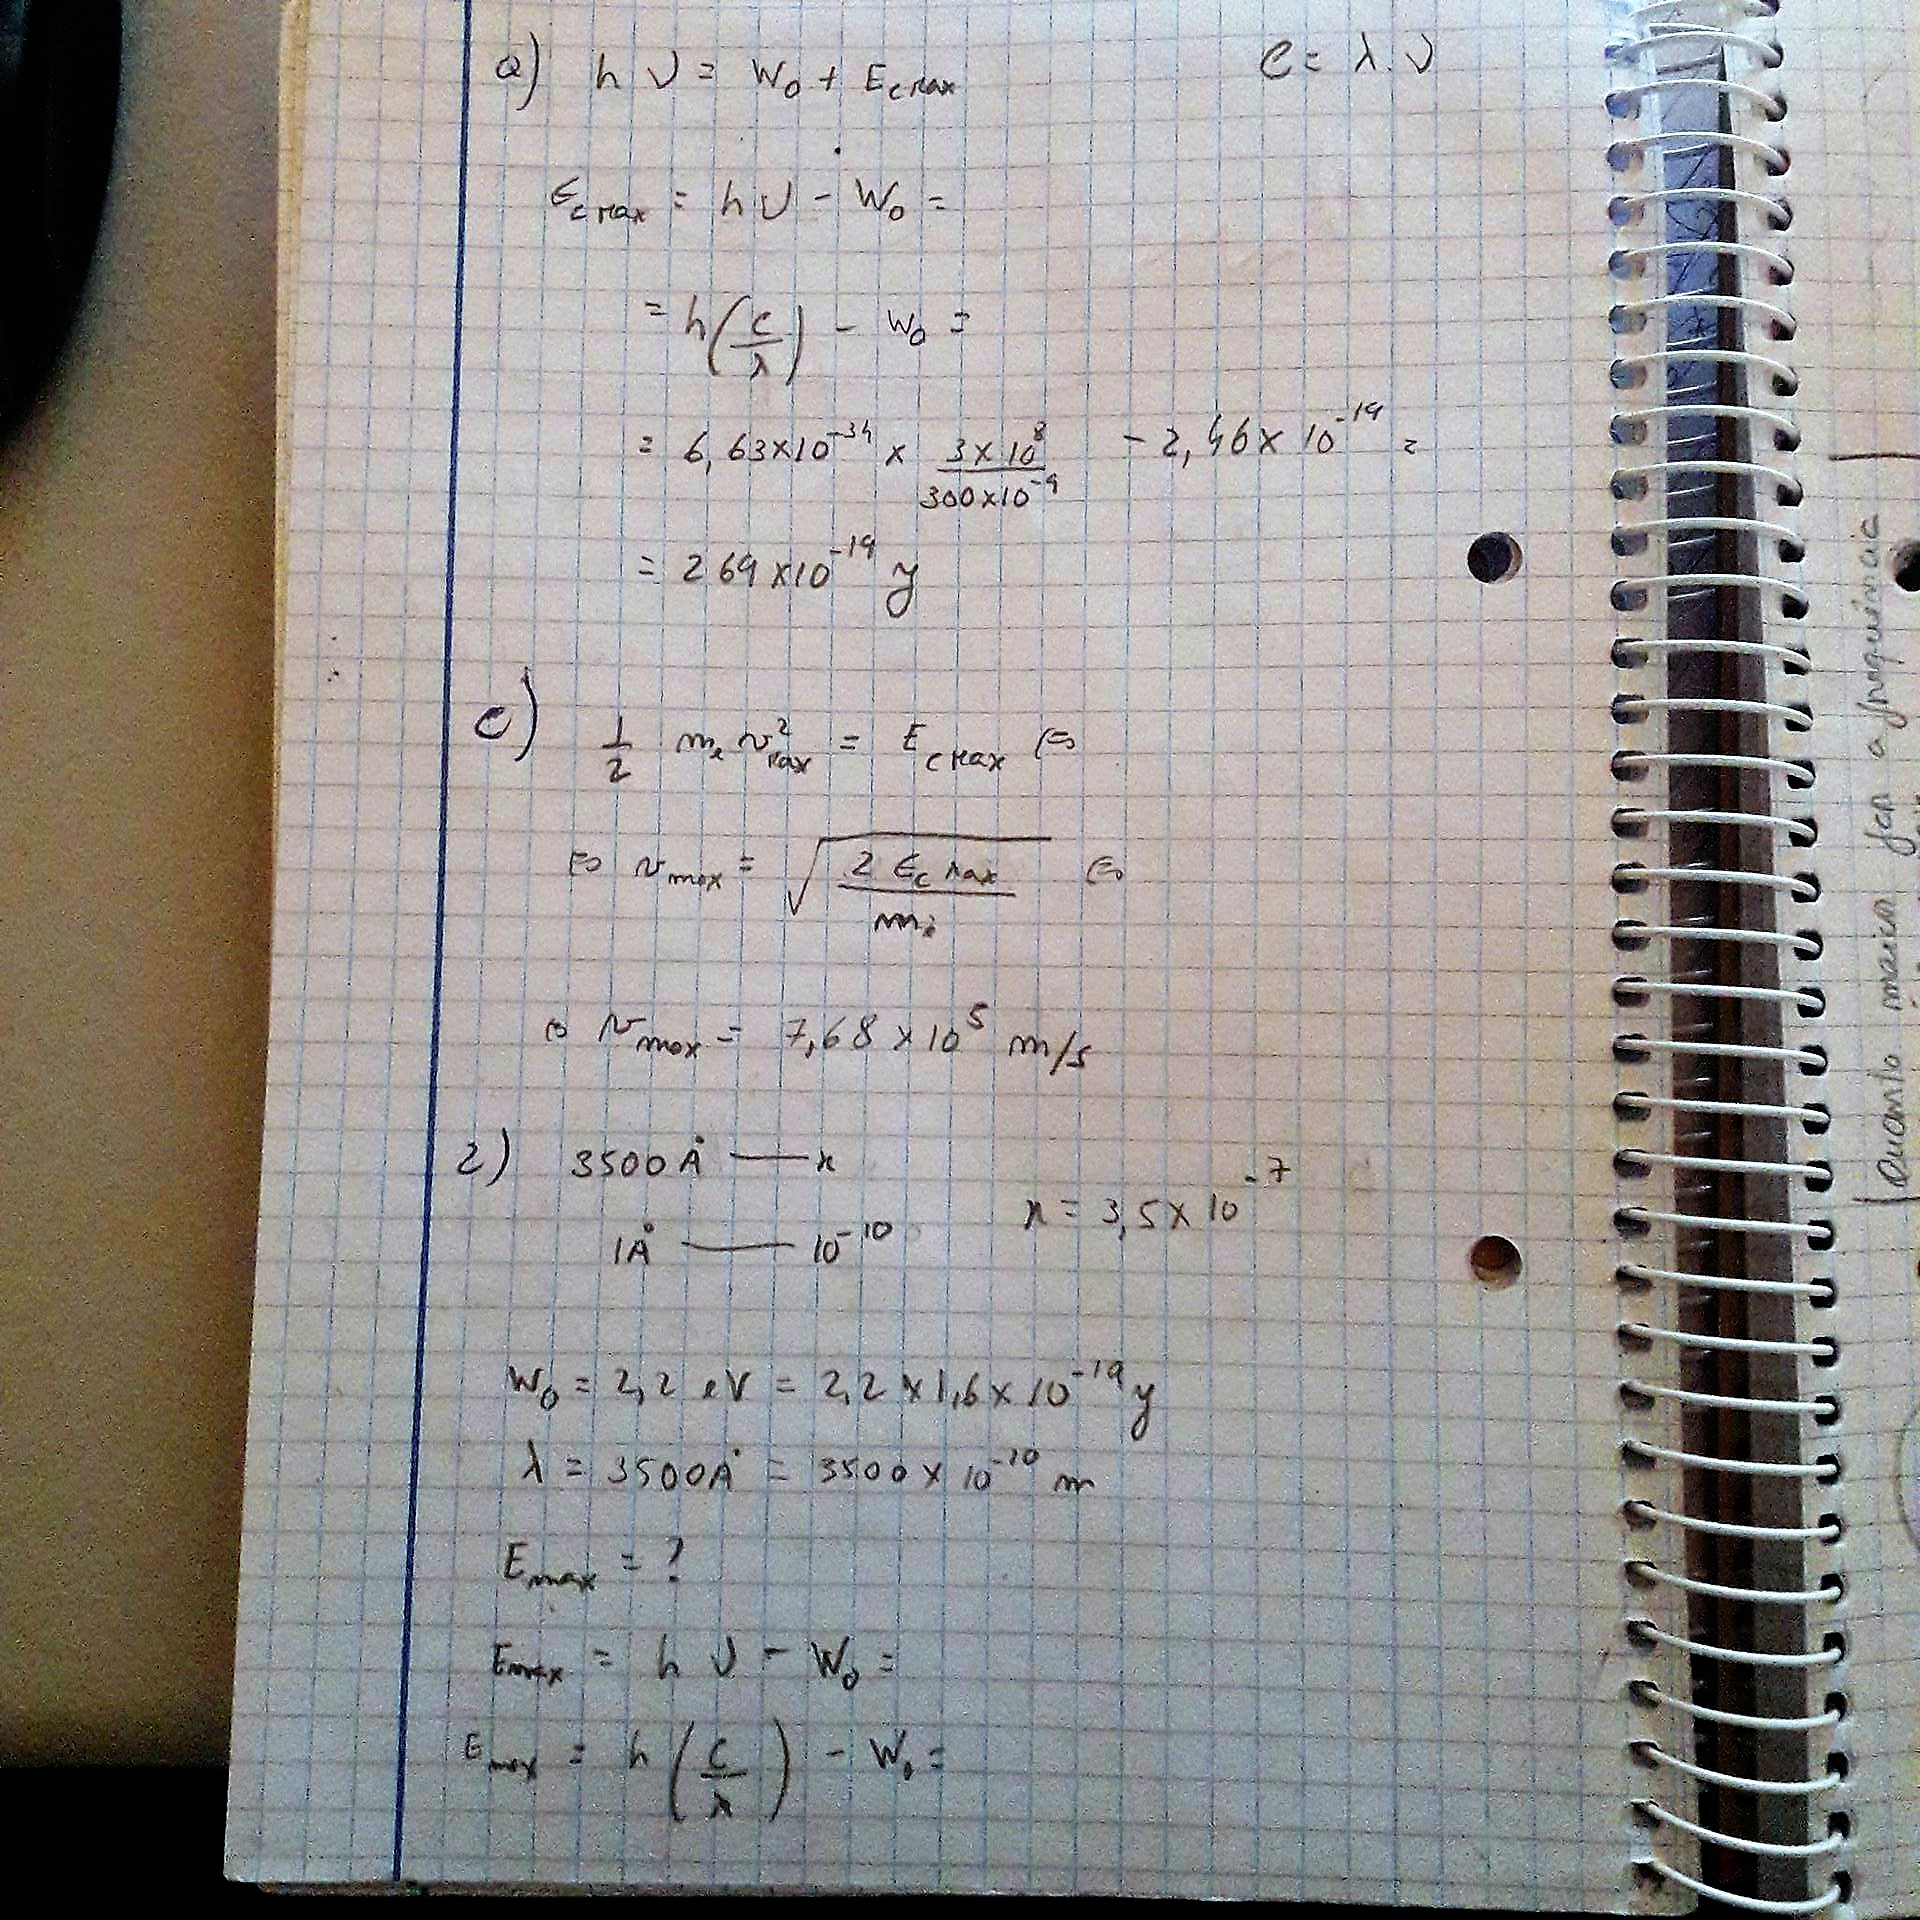 a) hν = W₀ + Ec max    c = λ.ν
Ec max = hν − W₀ =
= h(c/λ) − W₀ =
= 6,63×10⁻³⁴ × 3×10⁸/300×10⁻⁹ − 2,46×10⁻¹⁹ =
= 269×10⁻¹⁹ J
c) 1/2 mₑ v²max = Ec max ⇔
⇔ v max = √(2 Ec max/mₑ) ⇔
⇔ v max = 7,68×10⁵ m/s
2) 3500 Å — x
x = 3,5×10⁻⁷
1Å — 10⁻¹⁰
W₀ = 2,2 eV = 2,2×1,6×10⁻¹⁹ J
λ = 3500Å = 3500×10⁻¹⁰ m
Emax = ?
Emax = hν − W₀ =
Emax = h(c/λ) − W₀ =
Quanto maior for a frequência